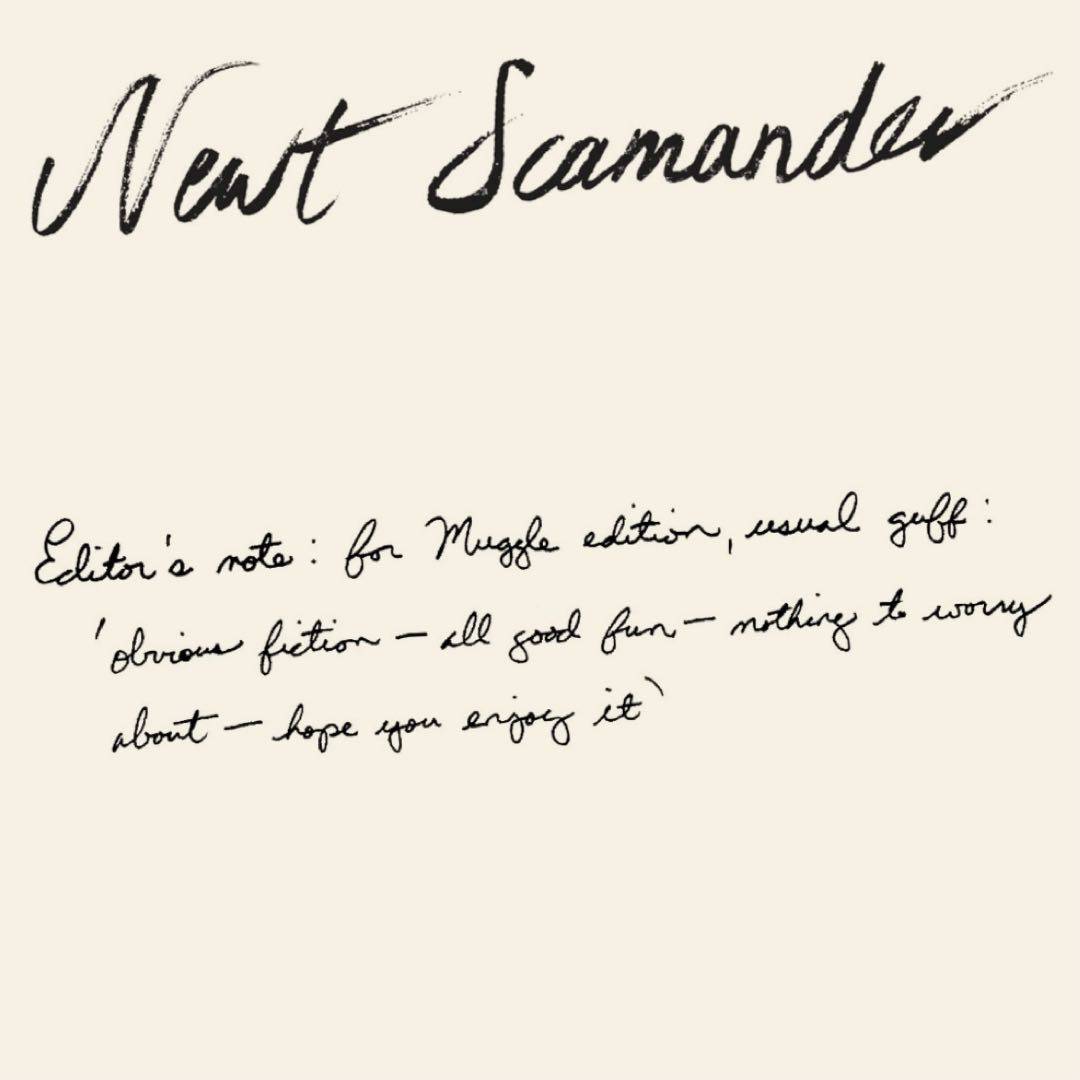 Newt Scamander
Editor's note: for Muggle edition, usual guff:
'obvious fiction – all good fun – nothing to worry
about – hope you enjoy it'